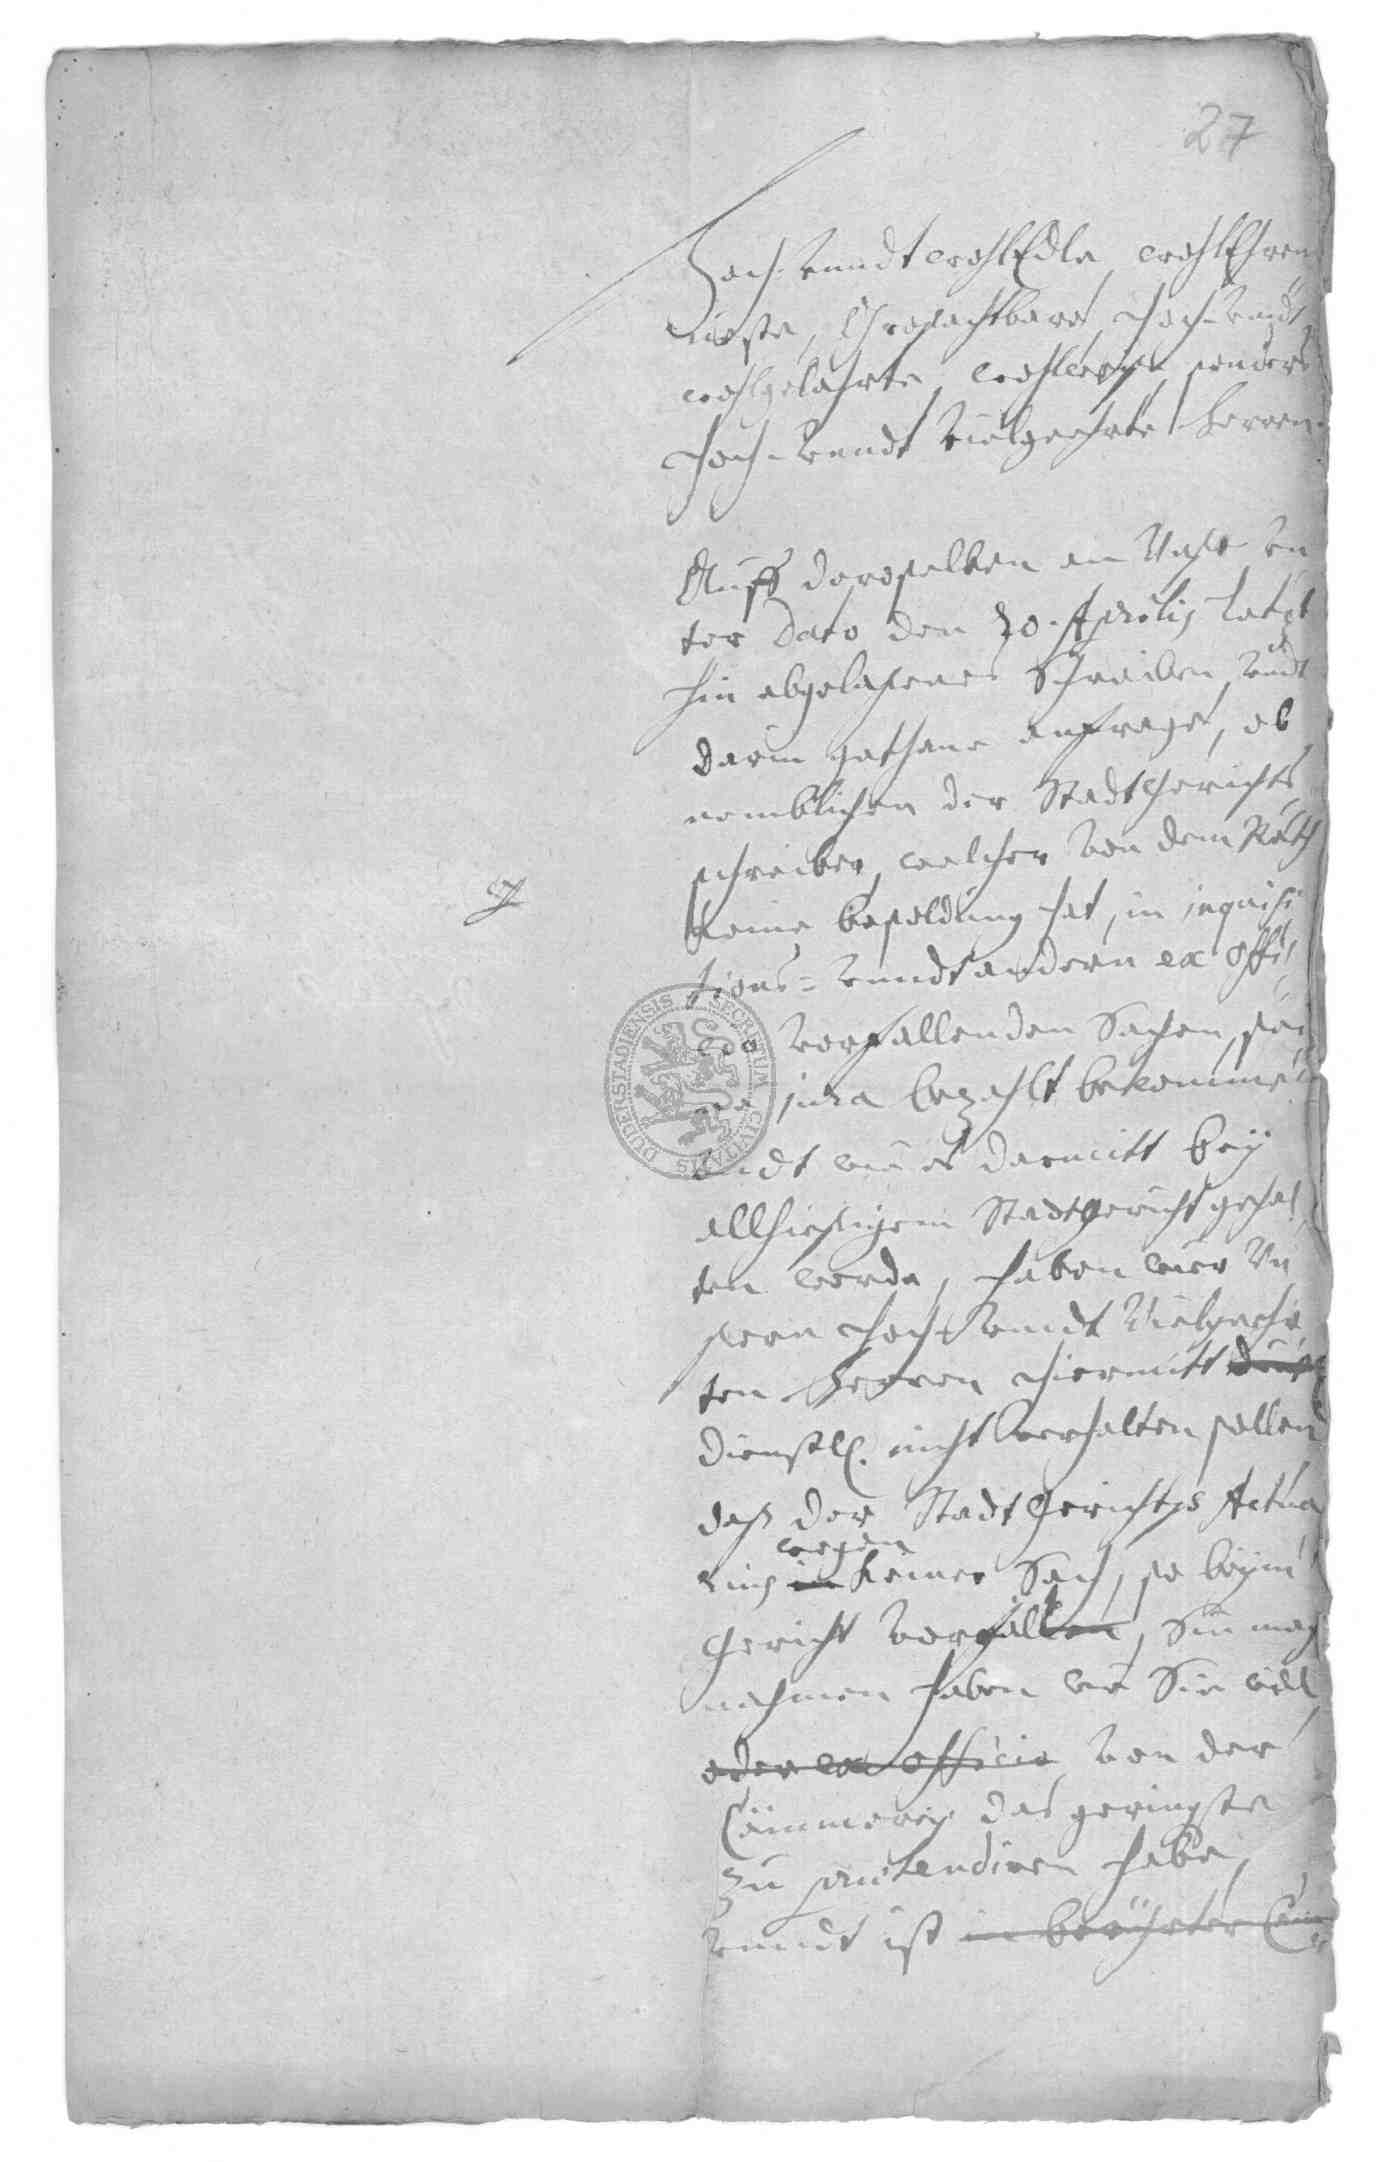 27
Hoch- vnndt wohlEdle, wohlEhren
veste, Großachtbare, Hoch- vndt
wohlgelahrte, wohlweyse, sonders
Hoch- vnndt vielgeehrte Herren.
Auff deroselben an Unß vn
ter dato den 20. Aprilis letzt
hin abgelaßenes Schreiben, vndt
darin gethane anfrage, ob
nemblichen der StadtGerichts
schreiber, welcher von dem Rath
keine besoldung hat, in inquisi
tions- vnndt andern ex offi
cio vorfallenden Sachen, sei
ne jura bezahlt bekomme
vndt wie es darmitt bey
allhießigem Stadtgericht gehal
ten werde, haben wier Un
sern Hoch- vnndt Vielgeehr
ten Herren hiermitt
dienstl. nicht verhalten sollen
daß der StadtGerichts Actua
wegen
rius in keiner Sach, so beym
Gericht vorfallen, Sie mag
nahmen haben wie Sie will,
oder ex officio von der
Cämmerey das geringste
zu praetendiren habe,
vnndt ist in berührter
SECRETUM CIVITATIS DUDERSTADIENSIS